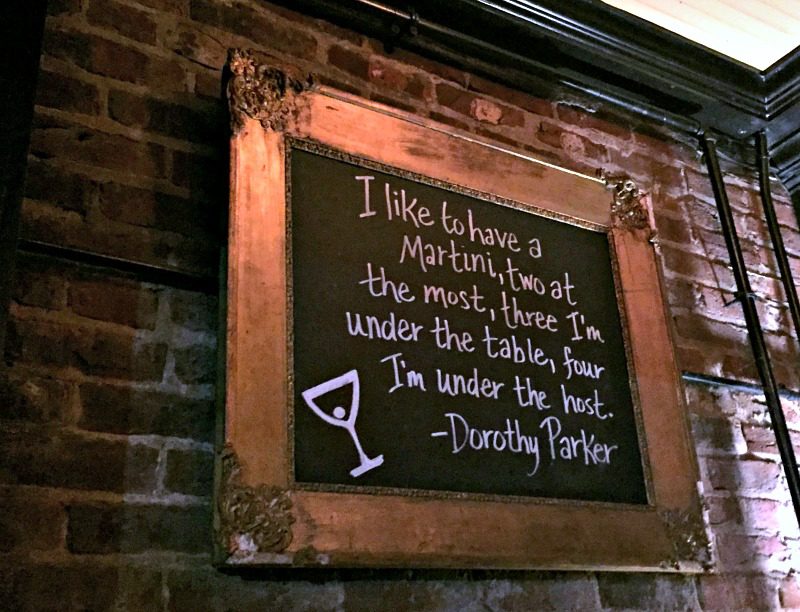 I like to have a
Martini, two at
the most, three I'm
under the table, four
I'm under the host.
-Dorothy Parker